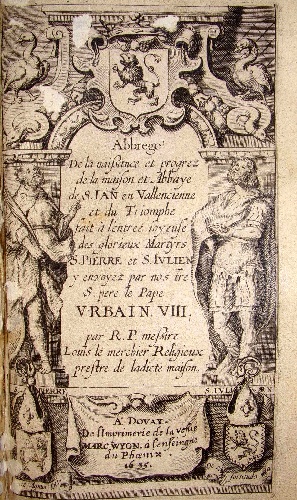 Abbregé
De la naissance et progrez
de la maison et Abbaye
de S. IAN en Vallencienne
et du Triomphe
fait à l'entree ioyeuse
des glorieux Martyrs
S. PIERRE et S. IVLIEN
y envoyez par nos tre
S. pere le Pape
VRBAIN. VIII.
par R. P. messire
Louis le merchier Religieux
prestre de ladicte maison.
PIERRE
S IVLIE
A DOVAY.
De l'Imprimerie de la vefue
MARC WYON, à l'enseigne
du Phœnix
1635.